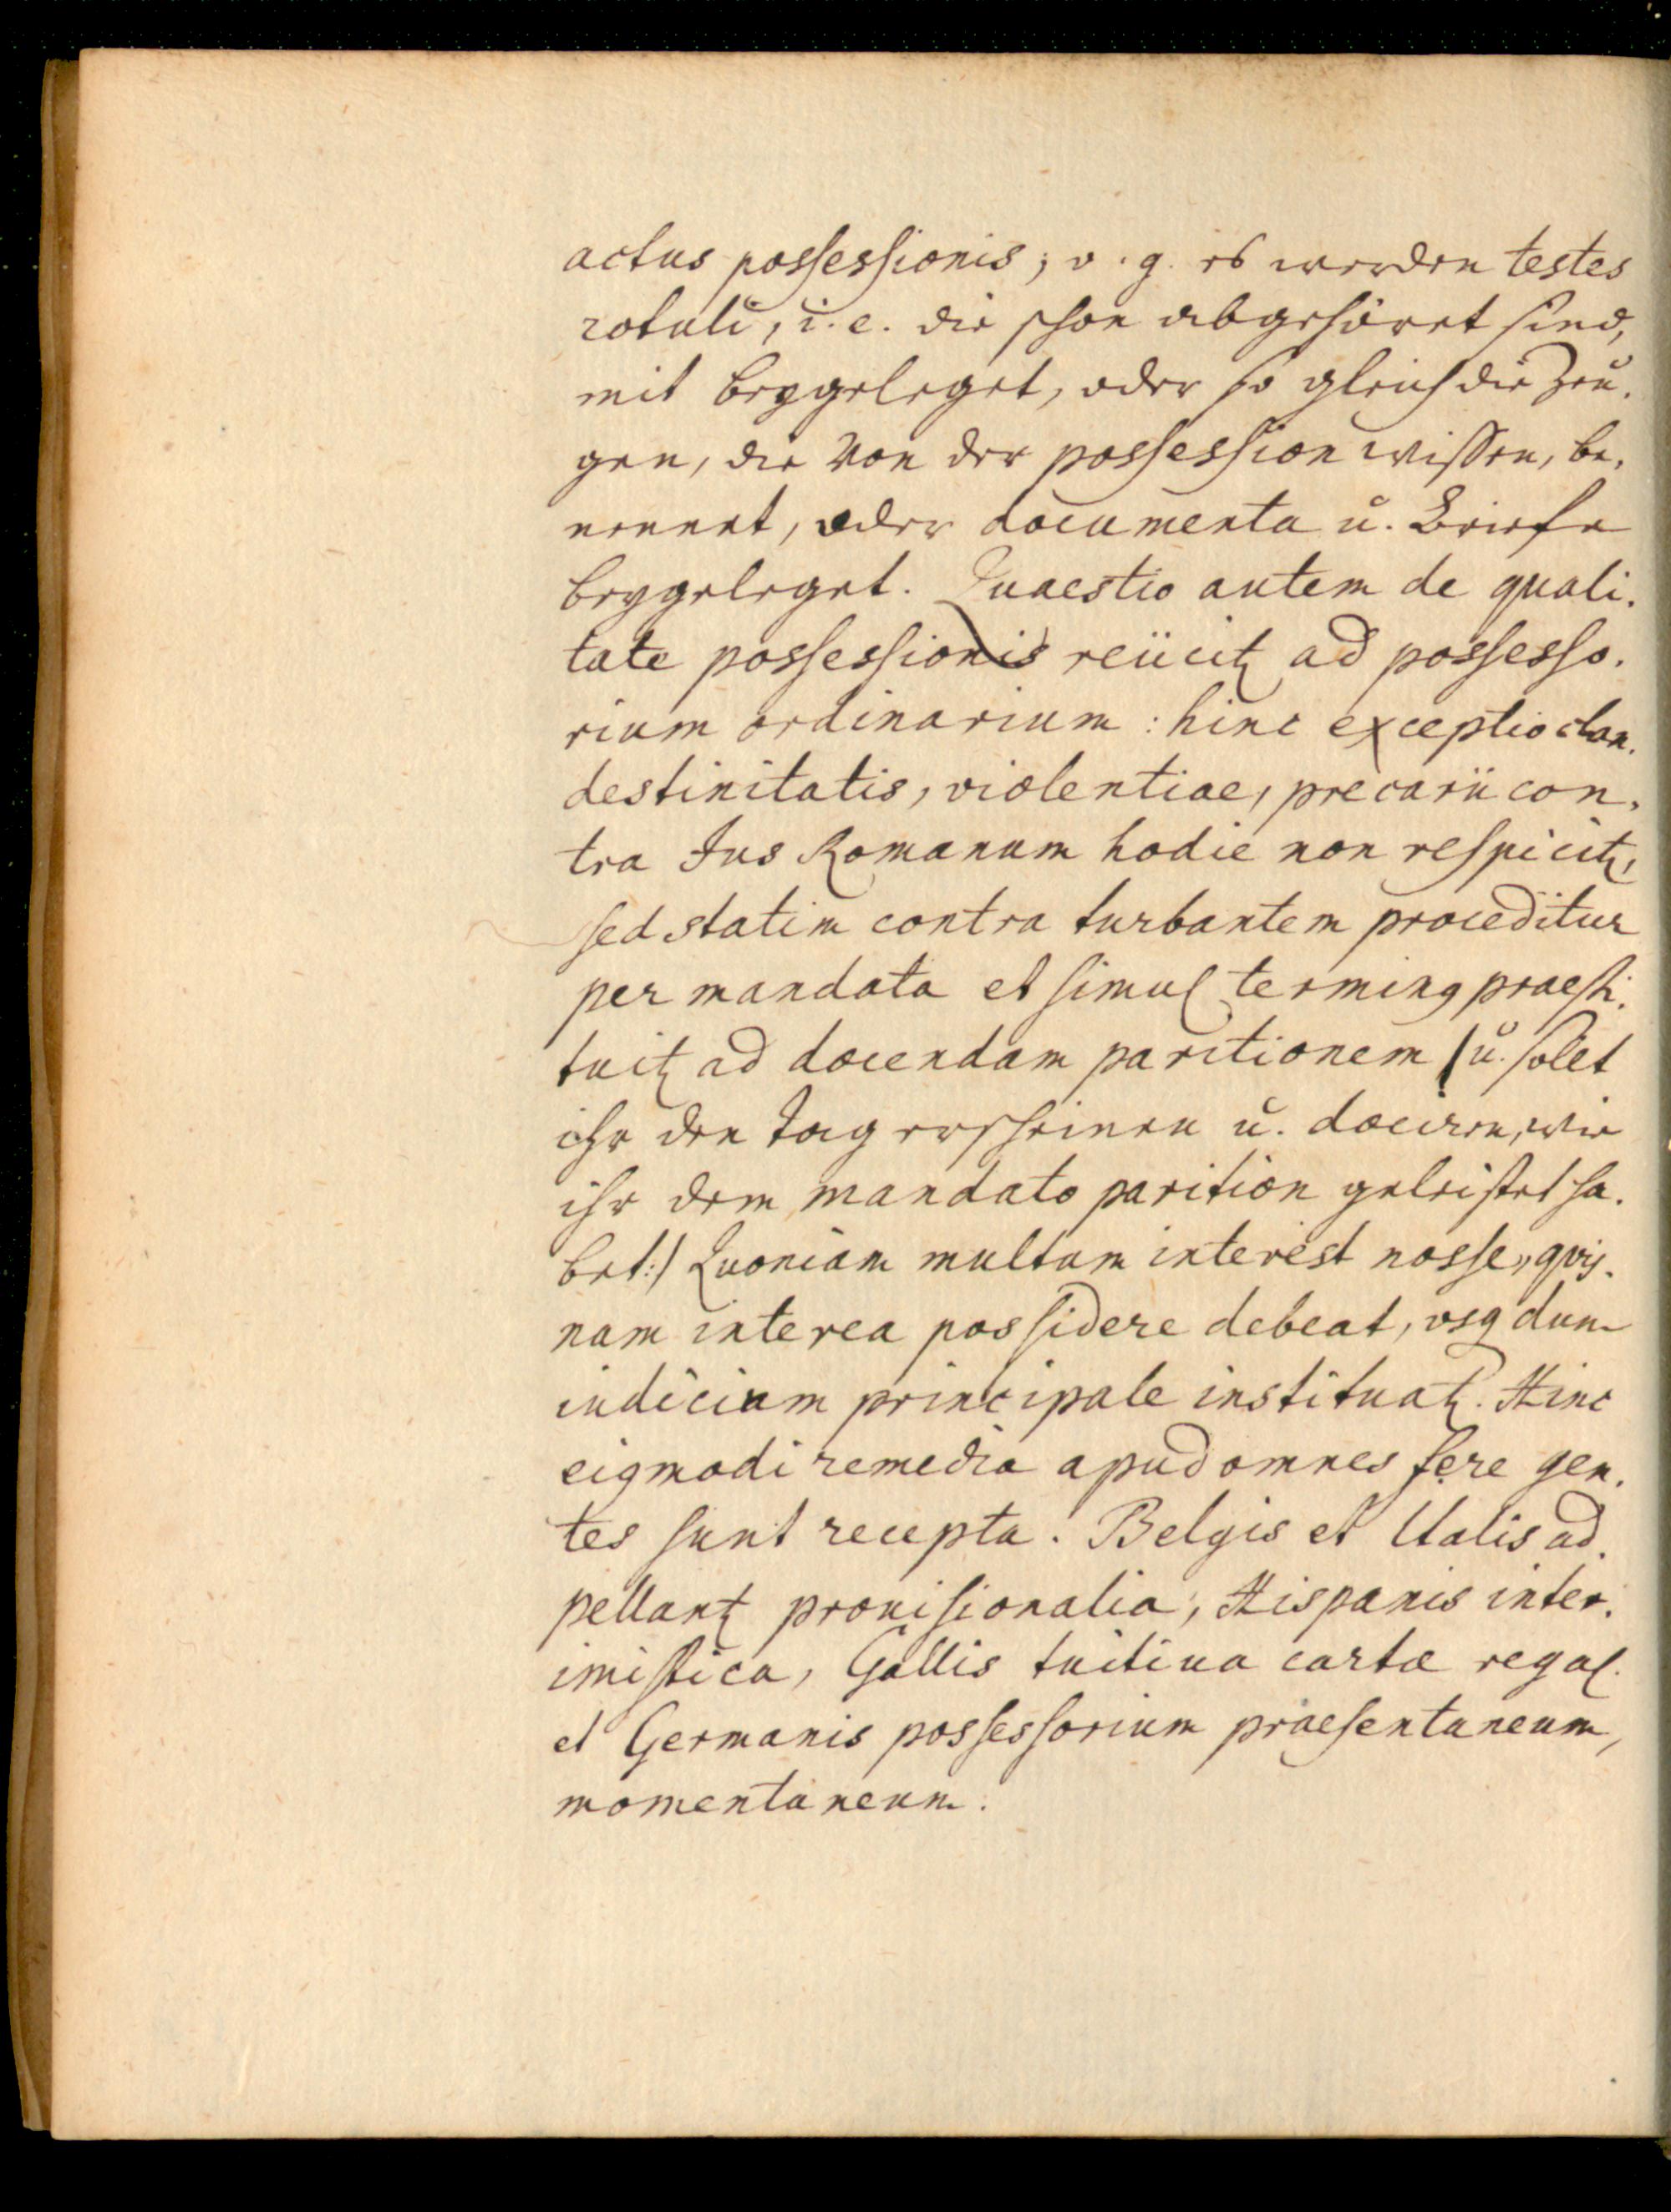 actus possessionis; v. g. es werden testes
rotuli, i. e. die schon abgehöret sind,
mit beygeleget, oder so gleich die Zeu-
gen, die von der possession wissen, be-
nennet, oder documenta u. Briefe
beygeleget. Quaestio autem de quali-
tate possessionis reiicitꝫ ad possesso-
rium ordinarium: hinc exceptio clan-
destinitatis, violentiae, precarii con-
tra Jus Romanum hodie non respicitꝫ,
sed statim contra turbantem proceditur
per mandata et simul terminꝰ praesti-
tuitꝫ ad docendam paritionem (u. sollet
ihr den tag erscheinen u. dociren, wie
ihr dem mandato parition geleistet ha-
bet:) Quoniam multum interest nosse, qvis-
nam interea possidere debeat, vsqꝫ dum
iudicium principale instituatꝫ. Hinc
eiꝰmodi remedia apud omnes fere gen-
tes sunt recepta. Belgis et Italis ad-
pellantꝫ prouisionalia, Hispanis inter-
imistica, Gallis tuitiua cartæ regal.
et Germanis possessorium praesentaneum,
momentaneum.